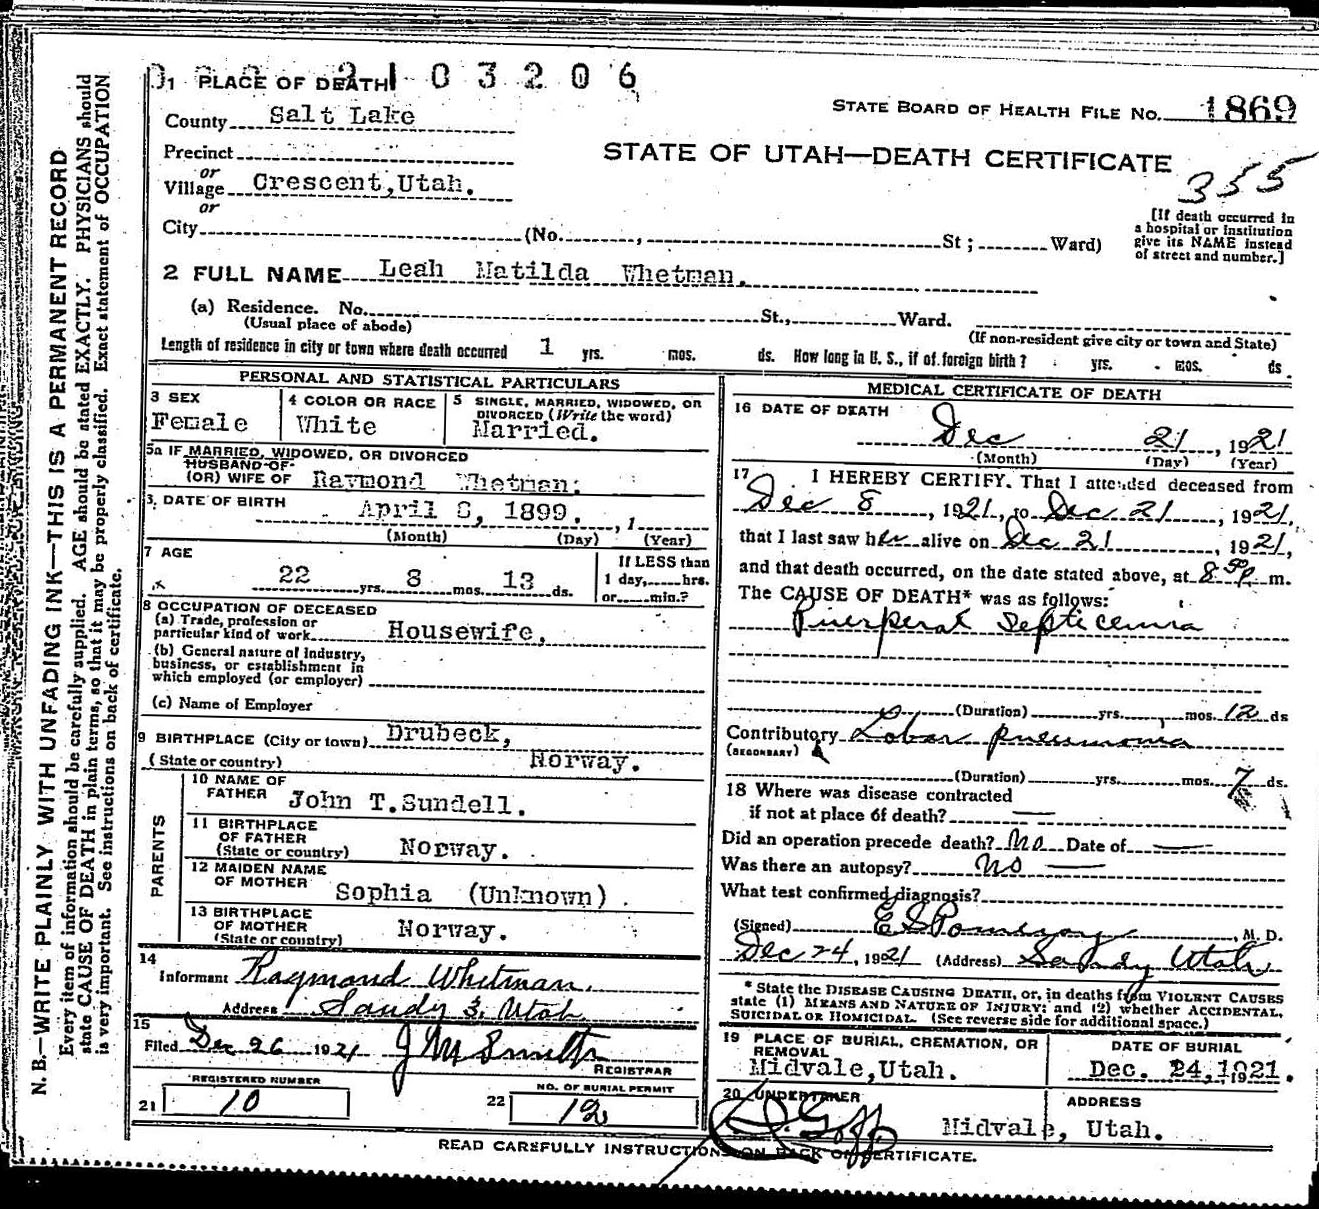 2 1 0 3 2 0 6
1 PLACE OF DEATH
STATE BOARD OF HEALTH FILE No. 1869
County Salt Lake
Precinct
STATE OF UTAH—DEATH CERTIFICATE
355
or
Village Crescent, Utah.
or
City (No. , St; Ward)
[If death occurred in
a hospital or institution
give its NAME instead
of street and number.]
2 FULL NAME Leah Matilda Whetman.
(a) Residence. No. St., Ward.
(Usual place of abode) (If non-resident give city or town and State)
Length of residence in city or town where death occurred 1 yrs. mos. ds. How long in U. S., if of foreign birth? yrs. mos. ds.
PERSONAL AND STATISTICAL PARTICULARS
3 SEX
Female
4 COLOR OR RACE
White
5 SINGLE, MARRIED, WIDOWED, OR
DIVORCED (Write the word)
Married.
5a IF MARRIED, WIDOWED, OR DIVORCED
HUSBAND OF
(OR) WIFE OF Raymond Whetman.
DATE OF BIRTH
April 8, 1899. , 1
(Month) (Day) (Year)
7 AGE
22 yrs. 8 mos. 13 ds.
If LESS than
1 day, hrs.
or min.?
8 OCCUPATION OF DECEASED
(a) Trade, profession or
particular kind of work Housewife.
(b) General nature of industry,
business, or establishment in
which employed (or employer)
(c) Name of Employer
9 BIRTHPLACE (City or town) Drubeck,
(State or country) Norway.
PARENTS
10 NAME OF
FATHER John T. Sundell.
11 BIRTHPLACE
OF FATHER
(State or country) Norway.
12 MAIDEN NAME
OF MOTHER Sophia (Unknown).
13 BIRTHPLACE
OF MOTHER
(State or country) Norway.
14
Informant Raymond Whetman.
Address Sandy 3. Utah
15
Filed Dec 26 1921 J M Smith
REGISTRAR
REGISTERED NUMBER
21 10
NO. OF BURIAL PERMIT
22 12
MEDICAL CERTIFICATE OF DEATH
16 DATE OF DEATH
Dec 21, 1921
(Month) (Day) (Year)
17 I HEREBY CERTIFY, That I attended deceased from
Dec 8, 1921, to Dec 21, 1921,
that I last saw her alive on Dec 21, 1921,
and that death occurred, on the date stated above, at 8 50 p. m.
The CAUSE OF DEATH* was as follows:
Puerperal Septicemia
(Duration) yrs. mos. 12 ds
Contributory Lobar pneumonia
(SECONDARY)
(Duration) yrs. mos. 7 ds.
18 Where was disease contracted
if not at place of death? —
Did an operation precede death? No Date of —
Was there an autopsy? No —
What test confirmed diagnosis?
(Signed) E S Pomeroy, M. D.
Dec 24, 1921 (Address) Sandy Utah
* State the DISEASE CAUSING DEATH, or, in deaths from VIOLENT CAUSES
state (1) MEANS AND NATURE OF INJURY; and (2) whether ACCIDENTAL,
SUICIDAL OR HOMICIDAL. (See reverse side for additional space.)
19 PLACE OF BURIAL, CREMATION, OR
REMOVAL
Midvale, Utah.
DATE OF BURIAL
Dec. 24, 1921.
20 UNDERTAKER
Goff
ADDRESS
Midvale, Utah.
READ CAREFULLY INSTRUCTIONS ON BACK OF CERTIFICATE.
N. B.—WRITE PLAINLY WITH UNFADING INK—THIS IS A PERMANENT RECORD
Every item of information should be carefully supplied. AGE should be stated EXACTLY. PHYSICIANS should
state CAUSE OF DEATH in plain terms, so that it may be properly classified. Exact statement of OCCUPATION
is very important. See instructions on back of certificate.